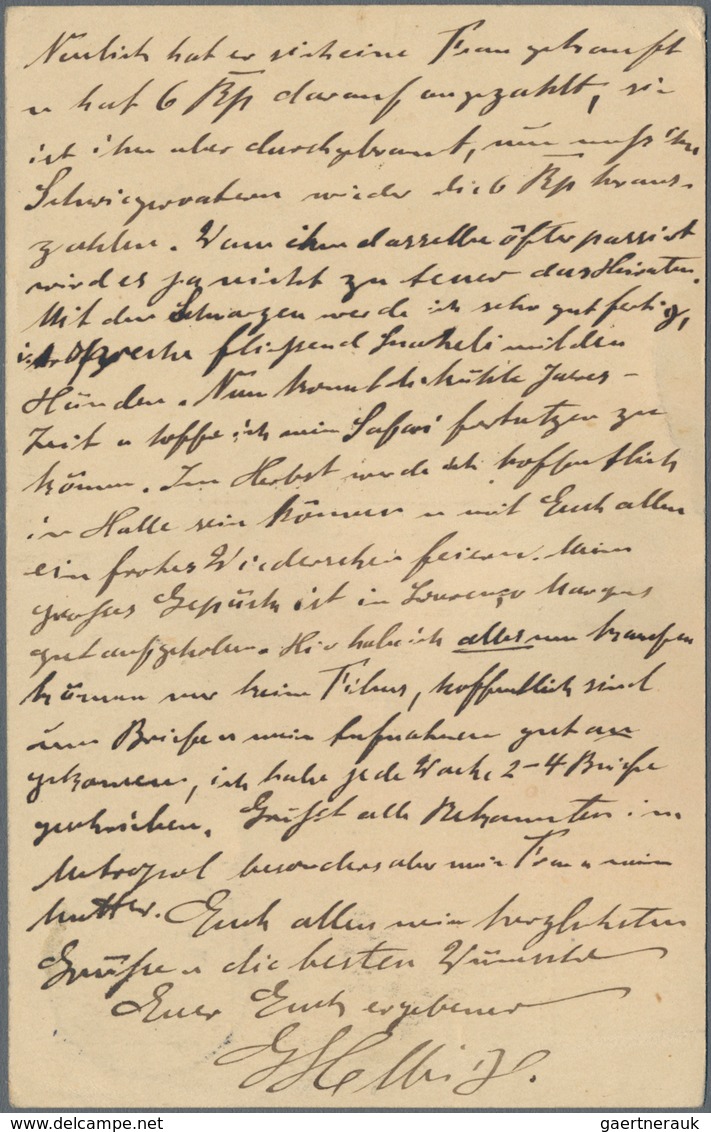 Neulich hat er sich eine Frau gekauft
u hat 6 Rp darauf angezahlt, sie
ist ihm aber durchgebrannt, nun muss ihm
Schwiegervatern wieder die 6 Rp heraus-
zahlen. Wenn ihm dasselbe öfter passirt
wird es ja nicht zu teuer das Heiraten.
Mit den Schwarzen werde ich sehr gut fertig,
ich spreche fließend Suaheli mit den
Hunden. Nun kommt die kühle Jares-
Zeit u hoffe ich mein Safari fortsetzen zu
können. Im Herbst werde ich hoffentlich
in Halle sein können u mit Euch allen
ein frohes Wiedersehen feiern. Mein
grosses Gepäck ist in Lourenzo Marques
gut aufgehoben. Hier habe ich alles nun kaufen
können nur keine Films, hoffentlich sind
nun Briefe u meine Aufnahmen gut an
gekommen, ich habe jede Woche 2-4 Briefe
geschrieben. Grüsst alle Bekannten im
Metropol besonders aber meine Frau u meine
Mutter. Euch allen mein herzlichsten
Grüsse u die besten Wünsche
Euer Euch ergebener
G Helbig.
gaertnerauk